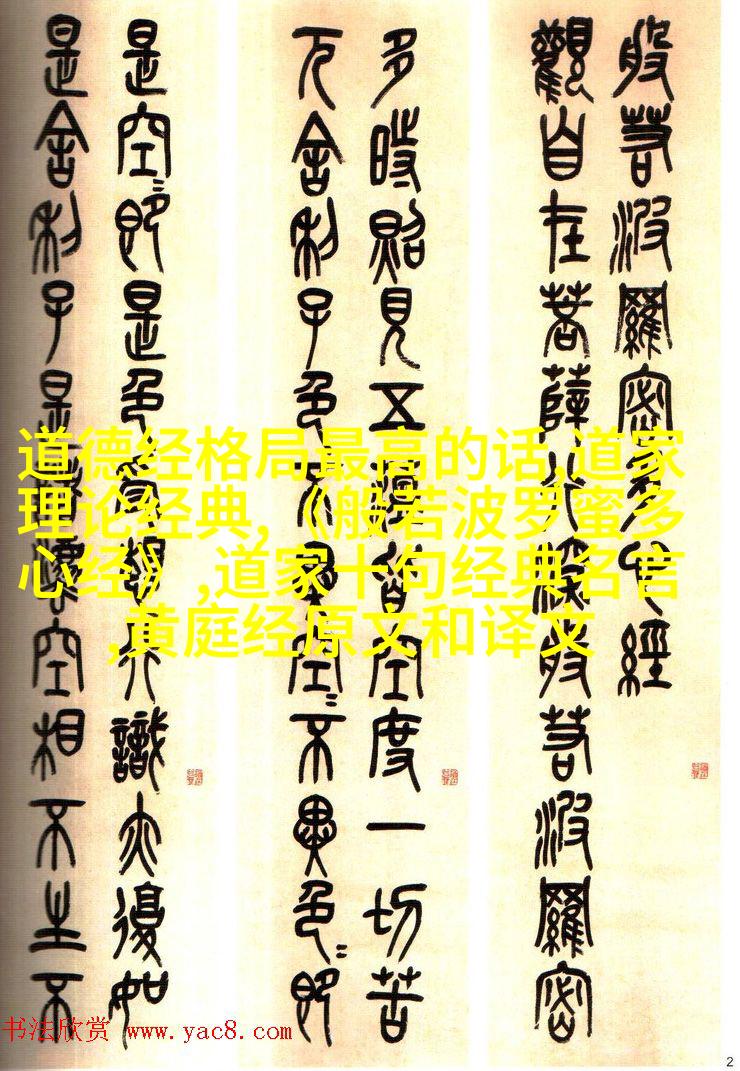 般若波羅密多心經
觀自在菩薩行深般若波羅密
多時照見五蘊皆空度一切苦
厄舍利子色不異空〻不異色〻即
是空〻即是色受想行識亦復如
是舍利子是諸法空相不生不
道德经格局最高的话,道家
理论经典,《般若波罗蜜多
心经》,道家十句经典名言
,黄庭经原文和译文
书法欣赏 www.yac8.com
2